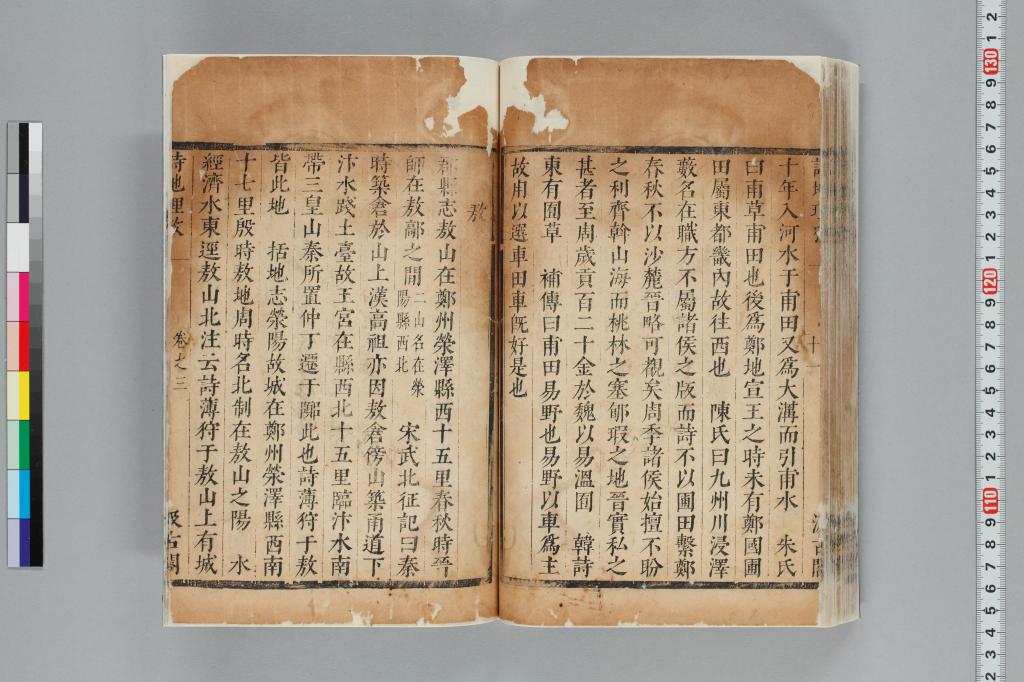 十一
十年入河水于甫田又爲大溝而引甫水　朱氏
曰甫草甫田也後爲鄭地宣王之時未有鄭國圃
田屬東都畿內故往西也　陳氏曰九州川浸澤
藪名在職方不屬諸侯之版而詩不以圃田繫鄭
春秋不以沙麓晉略可觀矣周季諸侯始擅不肦
之利齊斡山海而桃林之塞郇瑕之地晉實私之
甚者至周歲貢百二十金於魏以易溫囿　韓詩
東有圃草　補傳曰甫田易野也易野以車爲主
故用以選車田車旣好是也
敖
郡縣志敖山在鄭州滎澤縣西十五里春秋時晉
師在敖鄗之間二山名在滎陽縣西北　宋武北征記曰秦
時築倉於山上漢高祖亦因敖倉傍山築甬道下
汴水踐土臺故王宮在縣西北十五里臨汴水南
帶三皇山秦所置仲丁遷于隞此也詩薄狩于敖
皆此地　括地志滎陽故城在鄭州滎澤縣西南
十七里殷時敖地周時名北制在敖山之陽　水
經濟水東逕敖山北注云詩薄狩于敖山上有城
詩地理攷　卷之三　汲古閣